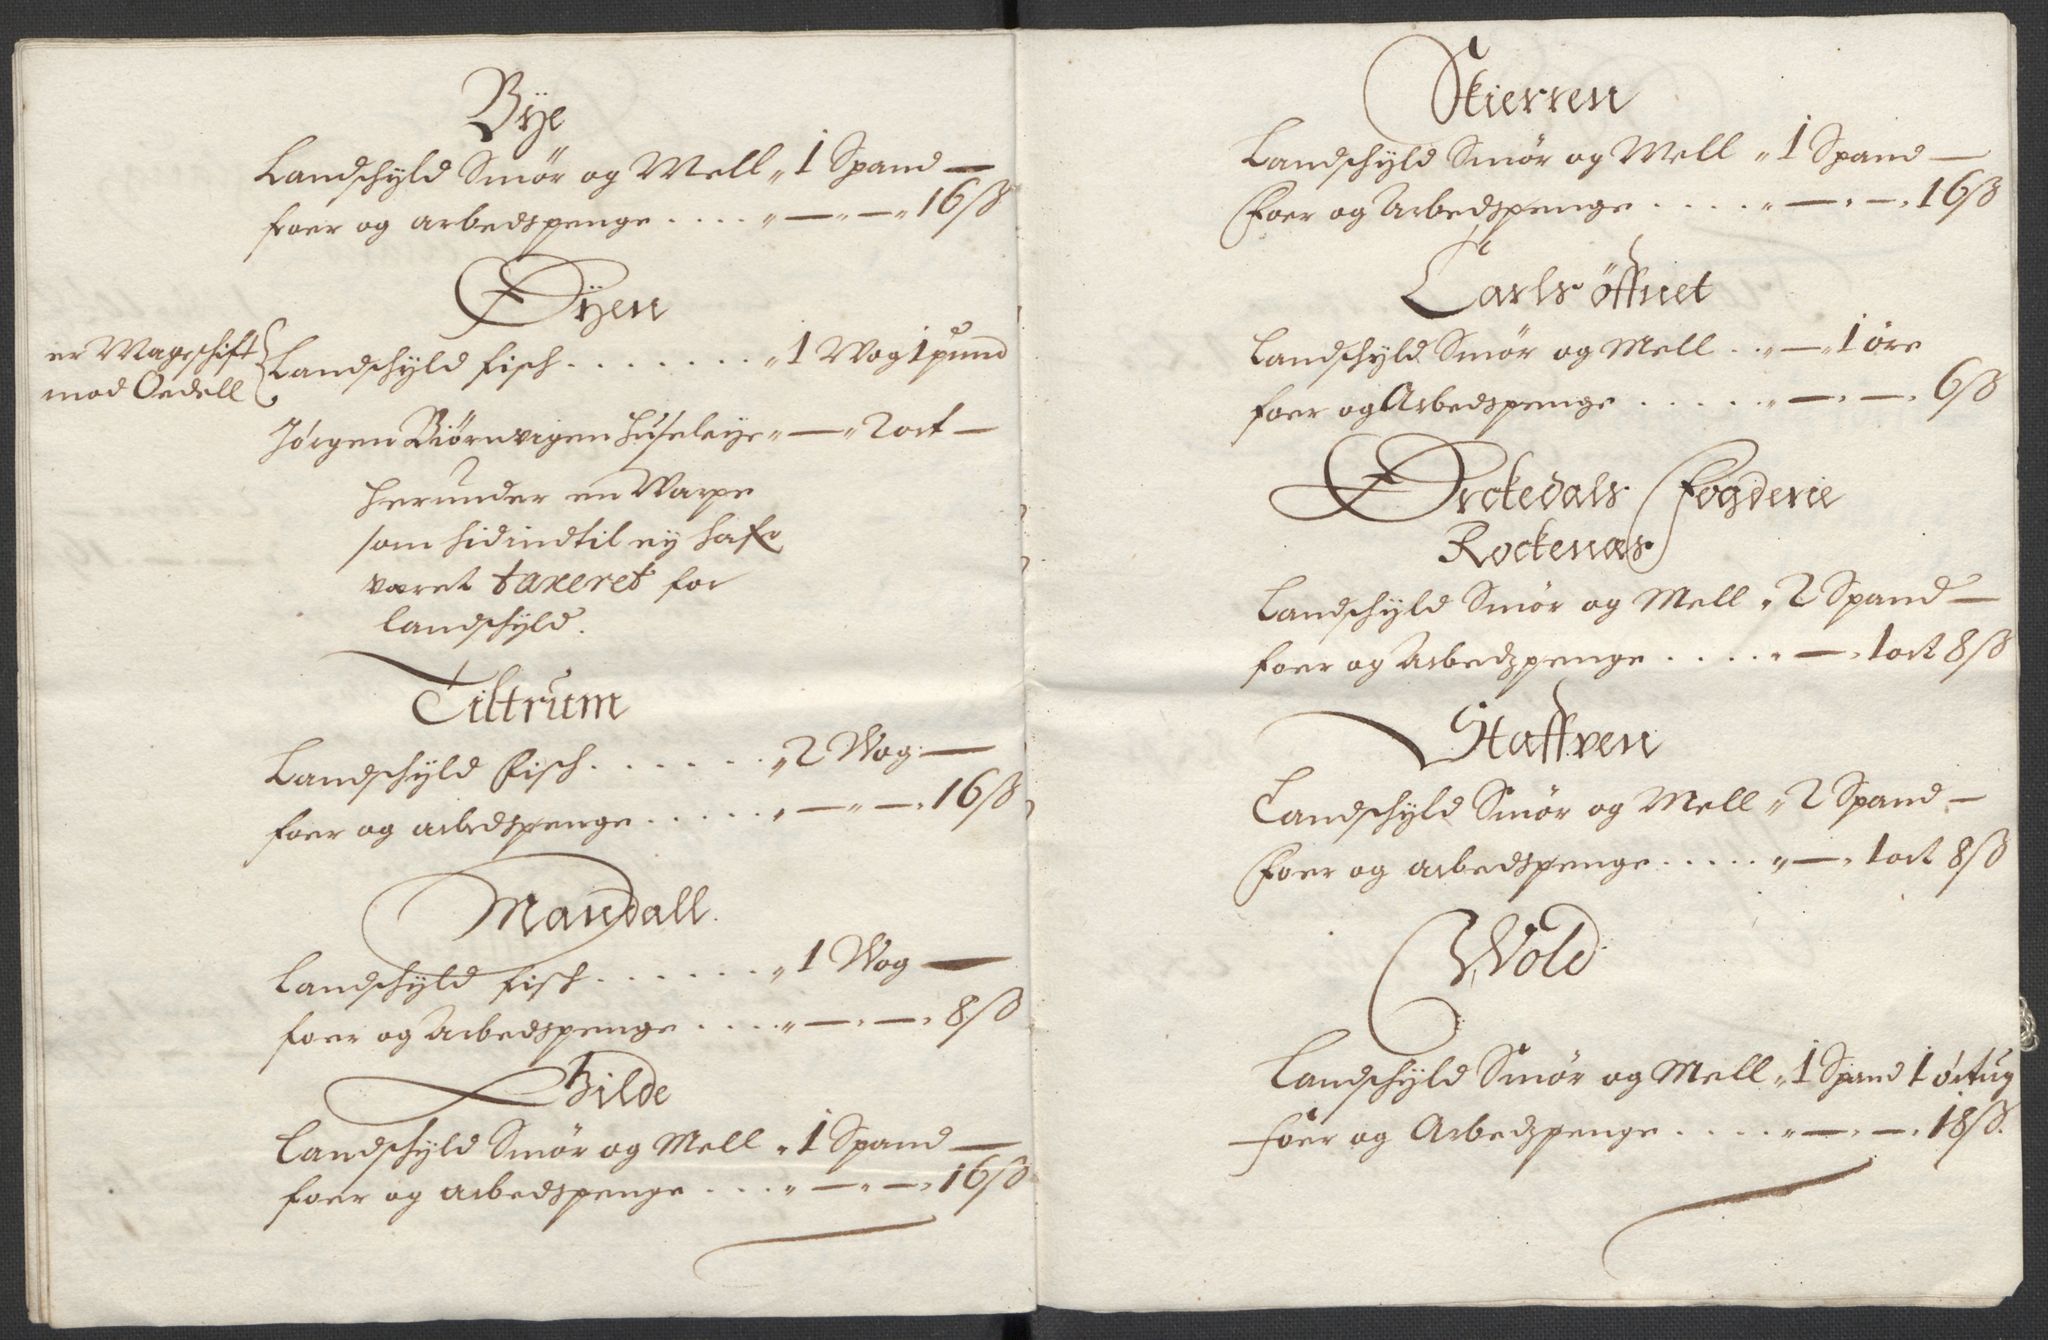 Bÿe
Landschÿld Smör og Mell „ 1 Spand —
foer og arbedspenge . . . . „ — „ — „ 16 ß
Øÿen
er Mageschift
mod Oedell
Landschÿld fisch . . . . . . „ 1 Wog 1 pund
Jörgen Biörnvigen huseleÿe „ — „ 2 ort —
herunder en Warpe
som hidindtil eÿ hafr
været taxeret for
landschÿld.
Tiltrum
Landschÿld Fisch . . . . . . „ 2 Wog —
foer og arbedspenge . . . . . „ — „ — „ 16 ß
Mandall.
Landschÿld fisch . . . . . . „ 1 Wog —
foer og Arbedspenge . . . . „ — „ — „ 8 ß
Bilde
Landschÿld Smör og Mell „ 1 Spand —
foer og arbedspenge . . . . „ — „ — „ 16 ß
Skierren
Landschÿld Smör og Mell „ 1 Spand —
Foer og Arbedspenge . . . . . „ — „ — „ 16 ß
Carlsöffnet
Landschÿld Smör og Mell . . „ — „ 1 öre
foer og Arbedspenge . . . . . „ — „ — „ 6 ß
Örckedals Fogderie
Rockenæs
Landschÿld Smör og Mell „ 2 Spand —
foer og Arbedspenge . . . . „ — „ 1 ort 8 ß
Staffven
Landschÿld Smör og Mell „ 2 Spand —
Foer og arbedspenge . . . . . „ — „ 1 ort 8 ß
Wold
Landschÿld Smör og Mell „ 1 Spand 1 örtug
foer og Arbedspenge . . . . . „ — „ — „ 18 ß.